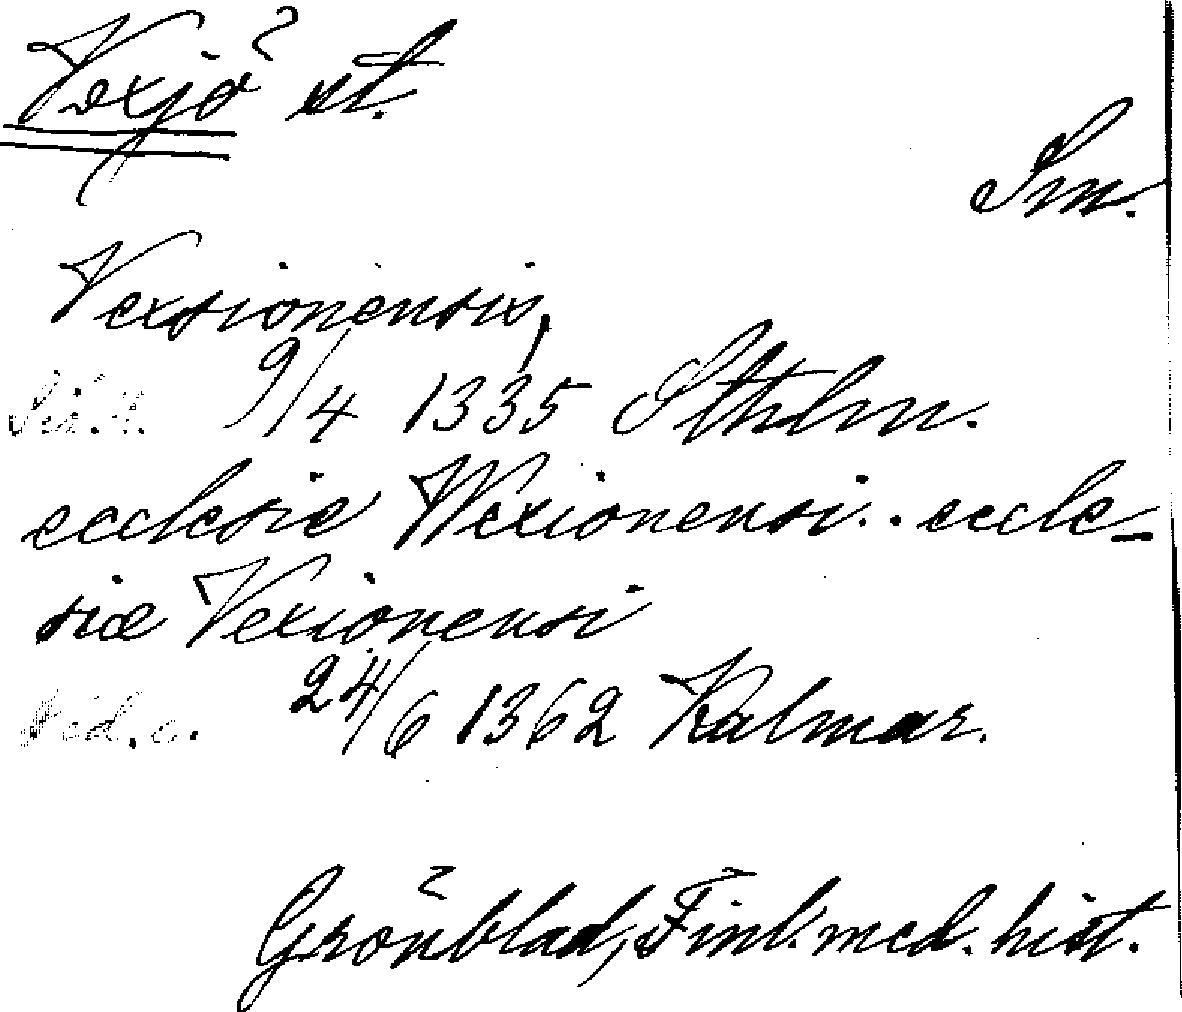 Växjö st.
Sm.
Vexsionensis,
9/4 1335 Sthlm.
ecclesie Wexionensi . . eccle-
siæ Vexionensi
24/6 1362 Kalmar.
Grönblad, Finl. med. hist.